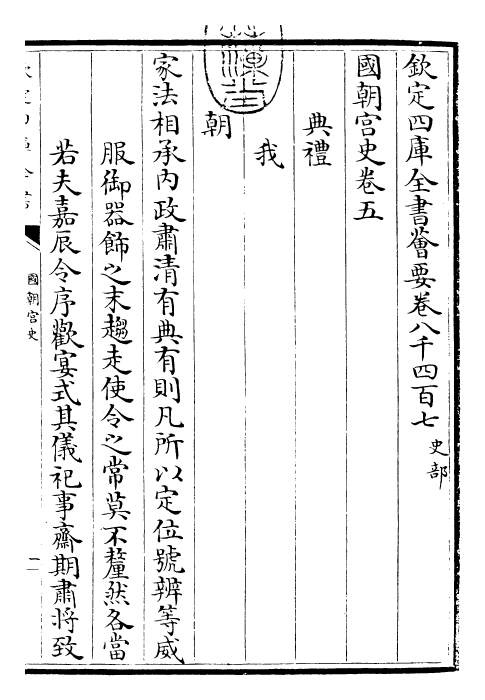 欽定四庫全書薈要卷八千四百七 史部
國朝宫史卷五
典禮
我
朝
家法相承内政肅清有典有則凡所以定位號辨等威
服御器飾之末趨走使令之常莫不釐然各當
若夫嘉辰令序歡宴式其儀祀事齋期肅將致
國朝宫史
一